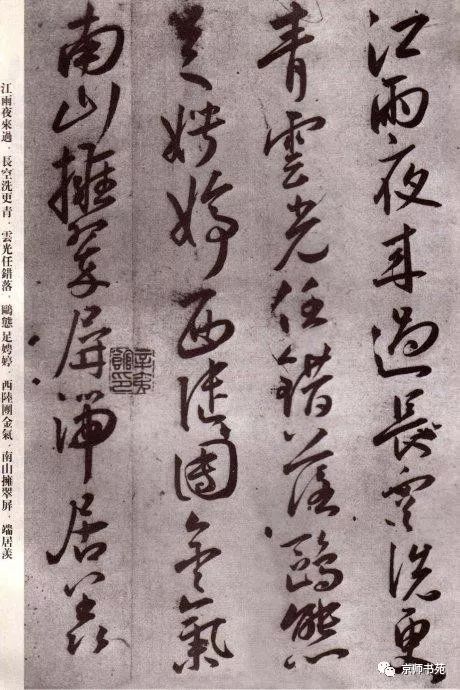 江雨夜来過長空洗更
青雲光任錯落鷗態
足娉婷西陸團金氣
南山擁翠屏端居羨
江雨夜來過．長空洗更青．雲光任錯落．鷗態足娉婷．西陸團金氣．南山擁翠屏．端居羨
京师书苑